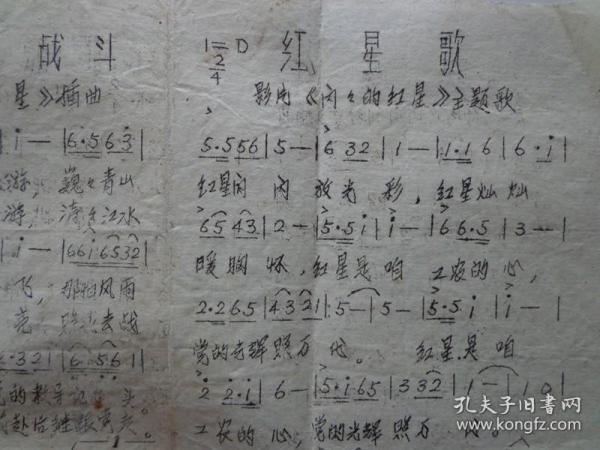 战斗
星》插曲
i — | 6·5 6 3 |
游, 巍々青山
游, 清々江水
i — | 6 6 i 6 5 3 2 |
飞, 那怕风雨
1=D 2/4
红星歌
影片《闪々的红星》主题歌
5·5 5 6 | 5 — | 6 3 2 | 1 — | 1·1 6 | 6·i |
红星闪闪放光彩, 红星灿灿
6 5 4 3 | 2 — | 5·5 i | i — | 6 6·5 | 3 — |
暖胸怀, 红星是咱工农的心,
2·2 6 5 | 4 3 2 1 | 5 — | 5 — | 5·5 i | i — |
党的光辉照万代。 红星是咱
2 2·i | 6 — | 5·i 6 5 | 3 3 2 | 1 — | 1 0 |
工农的心, 党的光辉照万
孔夫子旧书网
book.kongfz.com